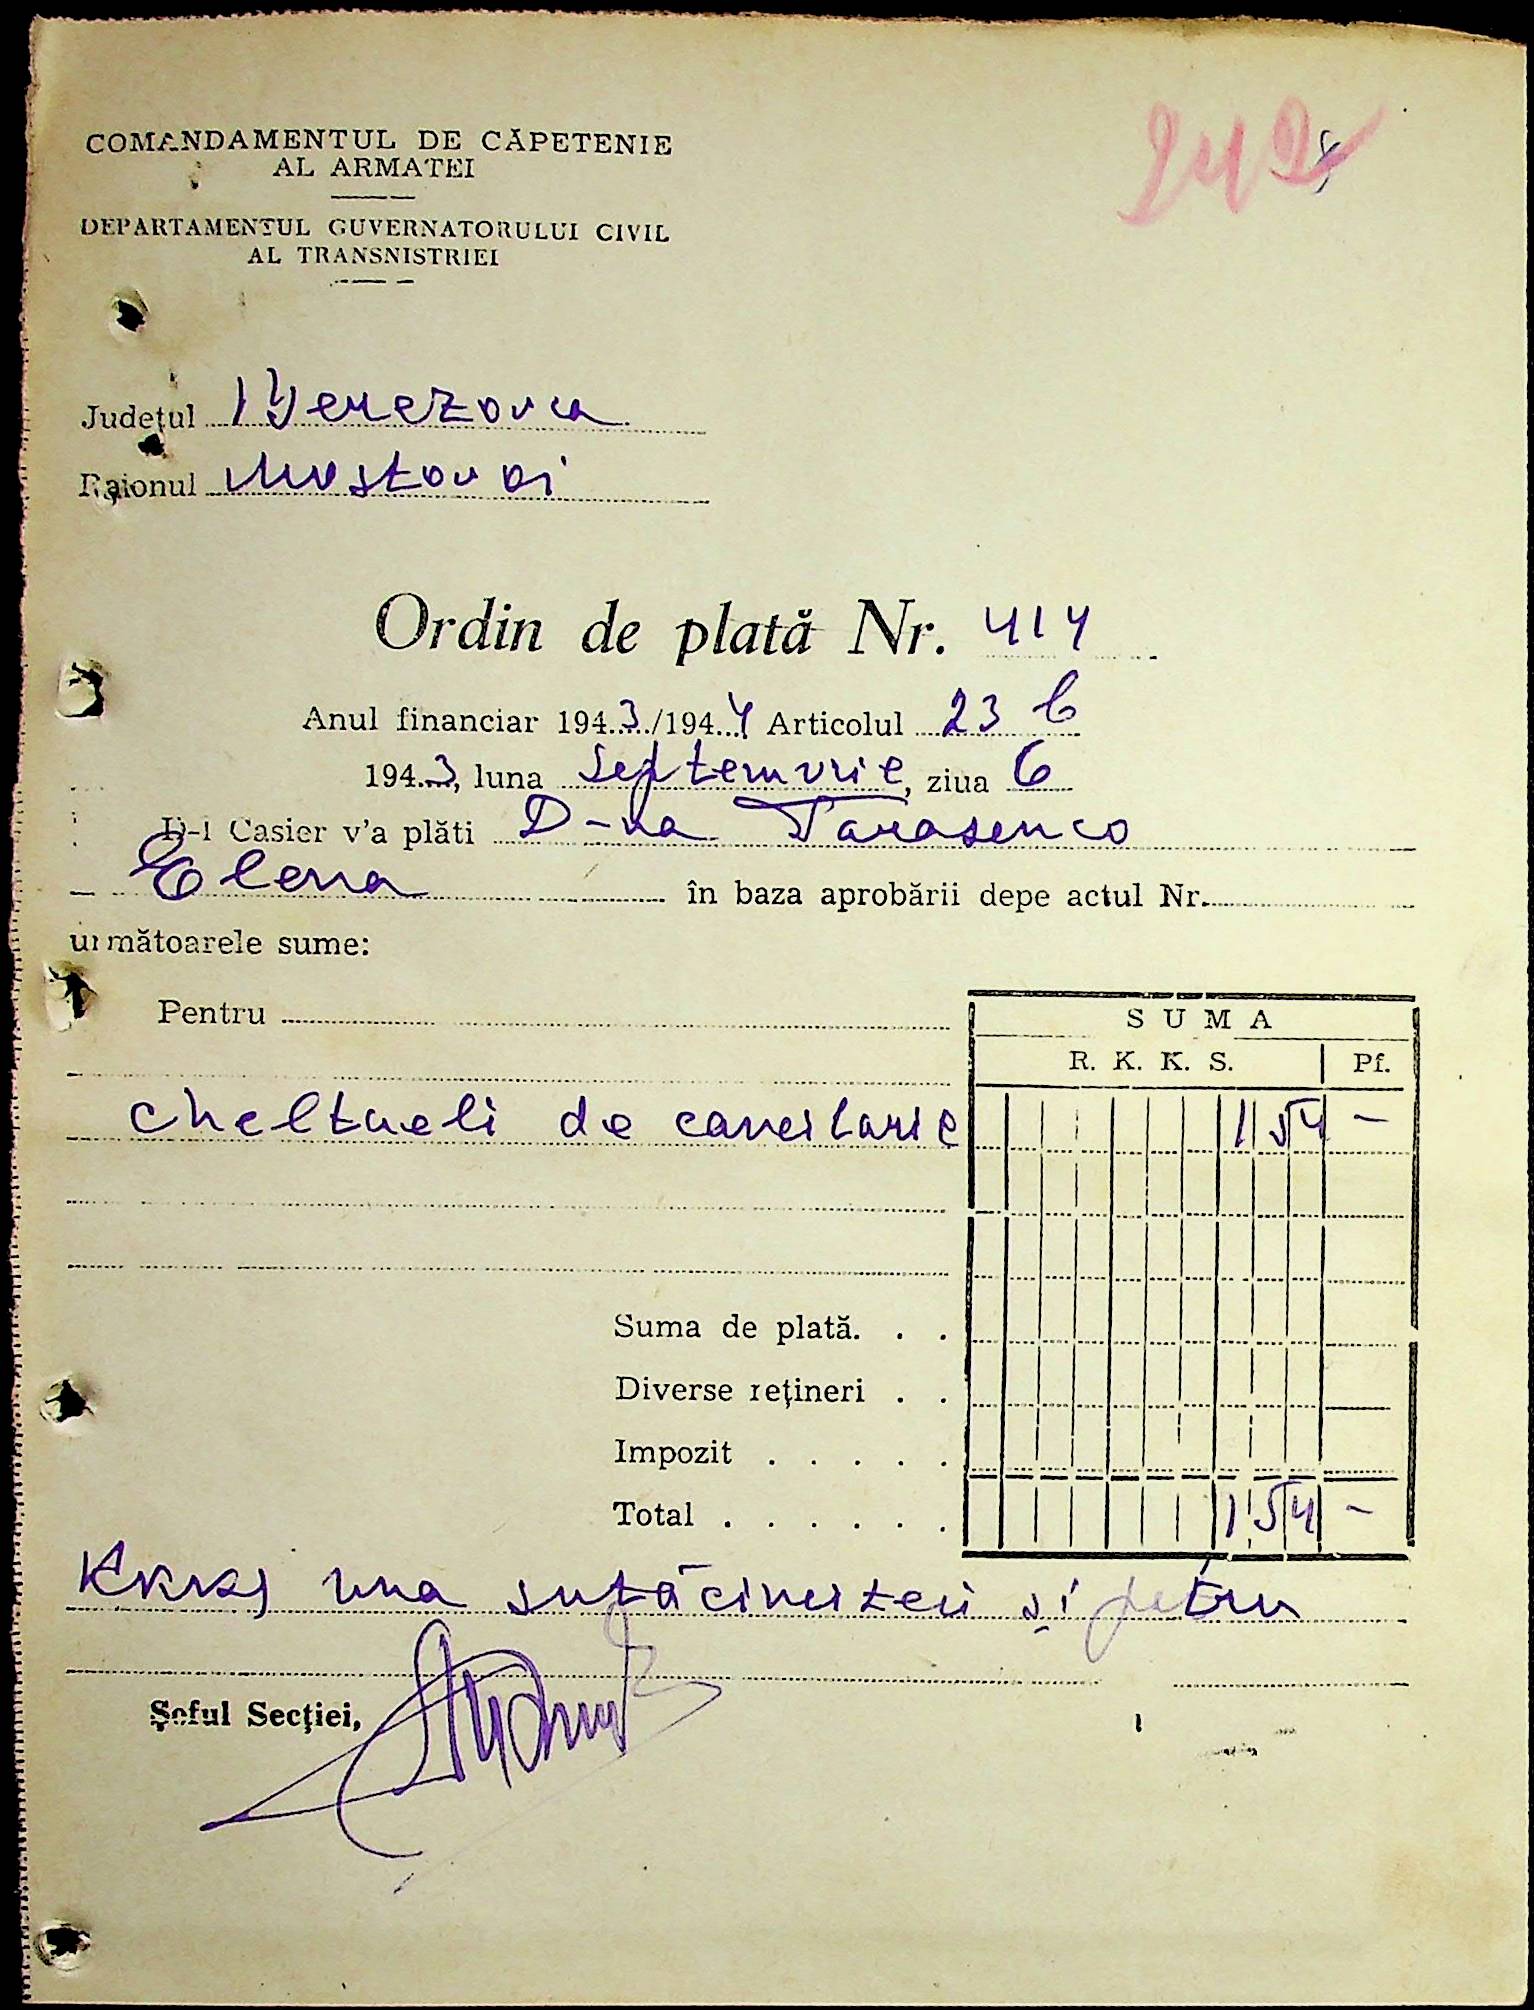 COMANDAMENTUL DE CĂPETENIE
AL ARMATEI
DEPARTAMENTUL GUVERNATORULUI CIVIL
AL TRANSNISTRIEI
242
Județul Berezovca
Raionul Mostovoi
Ordin de plată Nr. 414
Anul financiar 1943/1944 Articolul 23 b
1943, luna Septemvrie, ziua 6
D-l Casier v'a plăti D-na Tarasenco
Elena în baza aprobării depe actul Nr.
următoarele sume:
Pentru
SUMA
R. K. K. S. Pf.
cheltueli de cancilarie 154 -
Suma de plată. . .
Diverse rețineri . .
Impozit . . . . .
Total . . . . . . 154 -
RKKS una sutăcincizeci și patru
Șeful Secției,